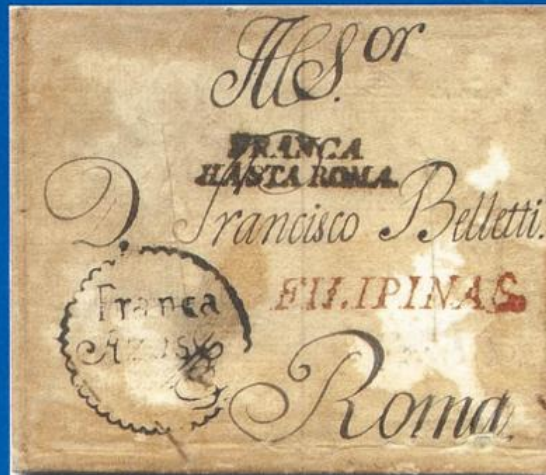 Al S.or
FRANCA
HASTA ROMA
D. Francisco Belletti.
FILIPINAS
Franca
Roma.